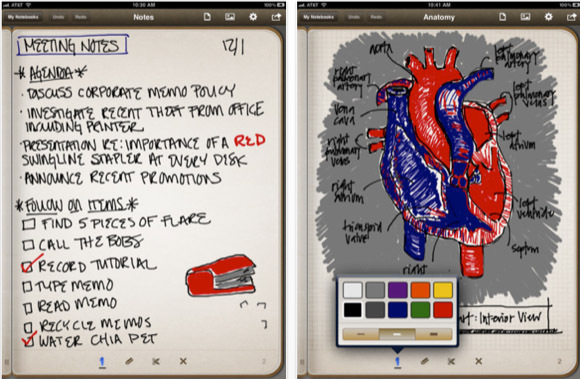 AT&T
10:30 AM
My Notebooks
Undo
Redo
Notes
MEETING NOTES
12/1
*AGENDA*
· DISCUSS CORPORATE MEMO POLICY
· INVESTIGATE RECENT THEFT FROM OFFICE
INCLUDING PRINTER
· PRESENTATION RE: IMPORTANCE OF A RED
SWINGLINE STAPLER AT EVERY DISK
· ANNOUNCE RECENT PROMOTIONS
*FOLLOW ON ITEMS*
FIND 5 PIECES OF FLARE
CALL THE BOBS
RECORD TUTORIAL
TYPE MEMO
READ MEMO
RECYCLE MEMOS
WATER CHIA PET
2
AT&T
10:41 AM
My Notebooks
Undo
Redo
Anatomy
aorta
left
pulmonary
artery
right
pulmonary
artery
left
pulmonary
veins
vena
cava
left
atrium
right
pulmonary
veins
right
atrium
left
ventricle
valve
septum
right
art: Interior View
2